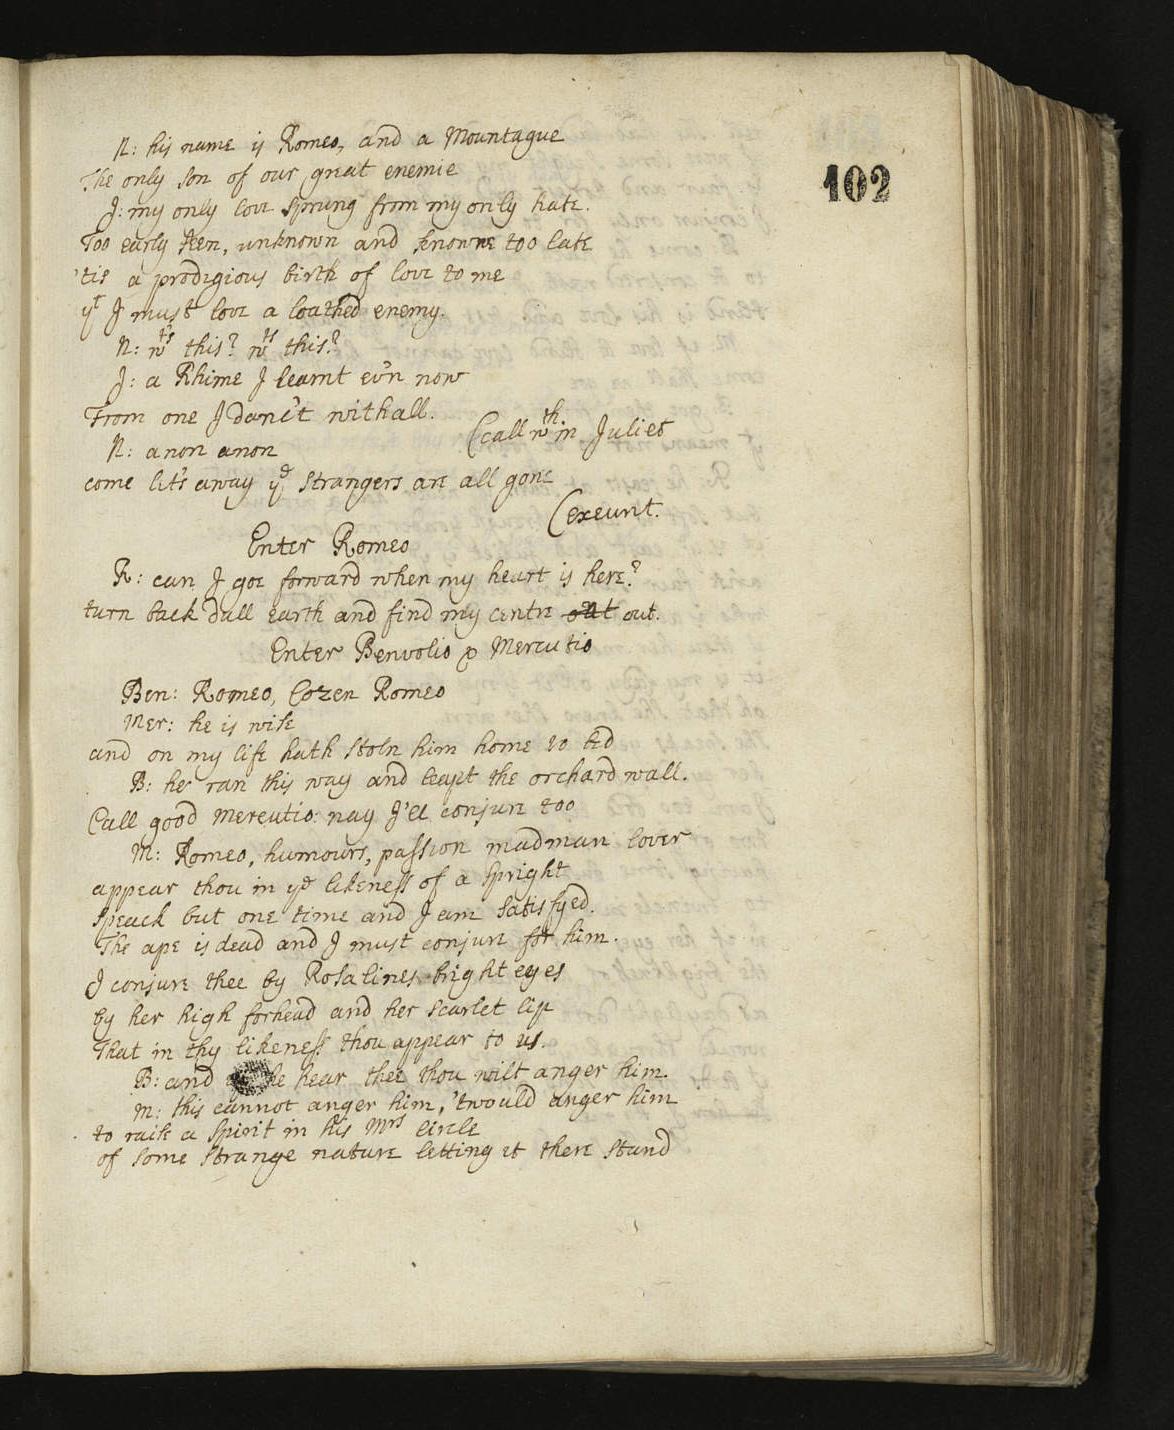 102
N: his name is Romeo, and a Mountague
The only son of our great enemie
J: my only love sprung from my only hate.
Too early seen, unknown and knowne too late
'tis a prodigious birth of love to me
yt J must love a loathed enemy.
N: wts this? wts this?
J: a Rhime J learnt ev'n now
From one J danc't withall.
(call wthin Juliet
N: anon anon
come let's away ye strangers are all gone
(exeunt.
Enter Romeo
R: can J goe forward when my heart is here?
turn back dull earth and find my centre out out.
Enter Benvolio & Mercutio
Ben: Romeo, Cozen Romeo
Mer: he is wise
and on my life hath stoln him home to bed
B: he ran this way and leapt the orchard wall.
Call good Mercutio: nay J'll conjure too
M: Romeo, humours, passion madman lover
appear thou in ye likeness of a spright
speack but one time and J am satisfyed.
The ape is dead and J must conjure for him.
J conjure thee by Rosalines bright eyes
by her high forhead and her scarlet lip
That in thy likeness thou appear to us.
B: and he hear thee thou wilt anger him.
M: this cannot anger him, 'twould anger him
to raise a spirit in his Mrs circle
of some strange nature letting it there stand